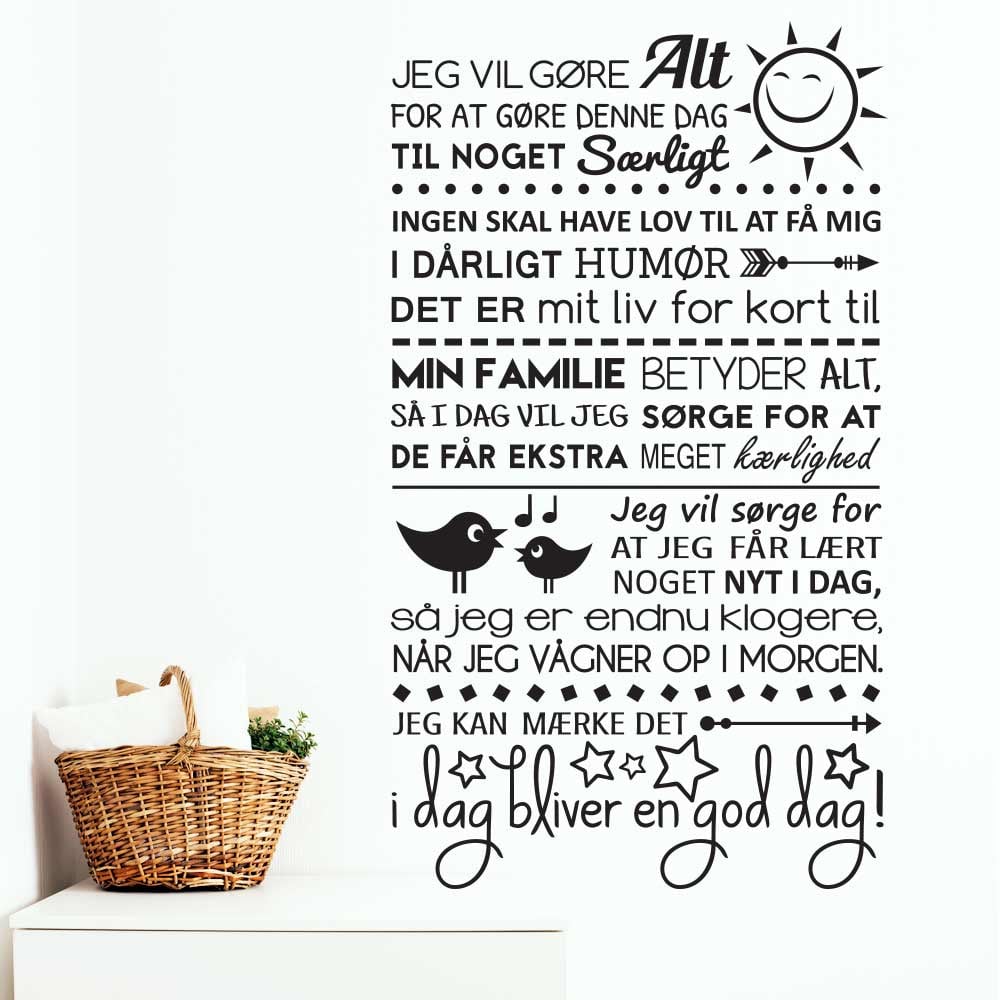 JEG VIL GØRE Alt
FOR AT GØRE DENNE DAG
TIL NOGET Særligt
INGEN SKAL HAVE LOV TIL AT FÅ MIG
I DÅRLIGT HUMØR
DET ER mit liv for kort til
MIN FAMILIE BETYDER ALT,
SÅ I DAG VIL JEG SØRGE FOR AT
DE FÅR EKSTRA MEGET kærlighed
Jeg vil sørge for
AT JEG FÅR LÆRT
NOGET NYT I DAG,
så jeg er endnu klogere,
NÅR JEG VÅGNER OP I MORGEN.
JEG KAN MÆRKE DET
i dag bliver en god dag!